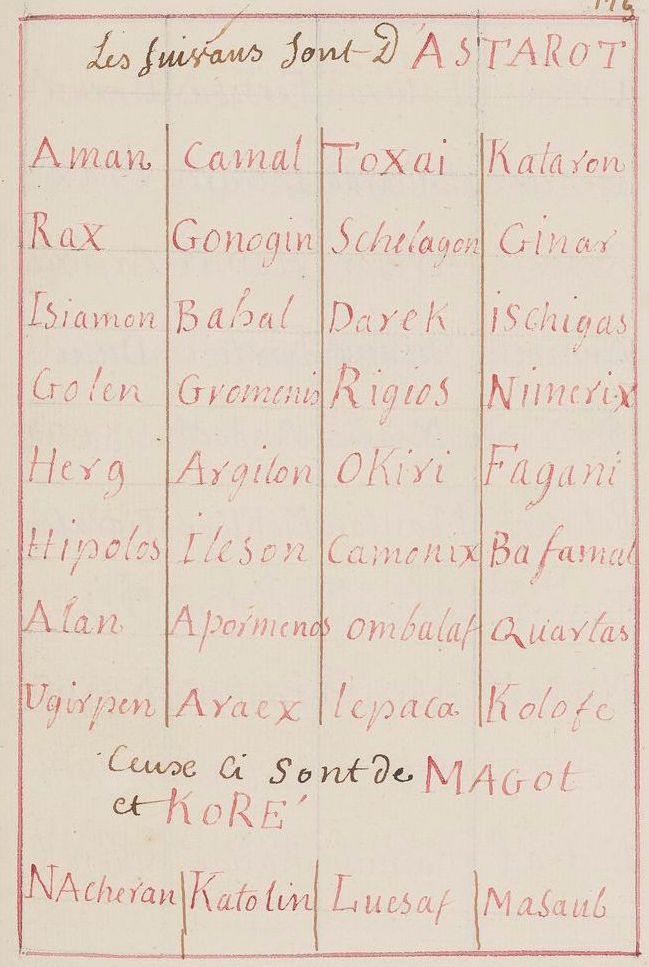 Les suivans sont D'ASTAROT
Aman Camal Toxai Kataron
Rax Gonogin Schelagon Ginar
Isiamon Bahal Darek ischigas
Golen Gromenis Rigios Nimerix
Herg Argilon OKiri Fagani
Hipolos Ileson Camonix Bafamal
Alan Apormenos ombalat Quartas
Ugirpen Araex lepaca Kolofe
Ceuxe Ci Sont de MAGOT
et KORÉ
NAcheran Katolin Luesaf Masaub